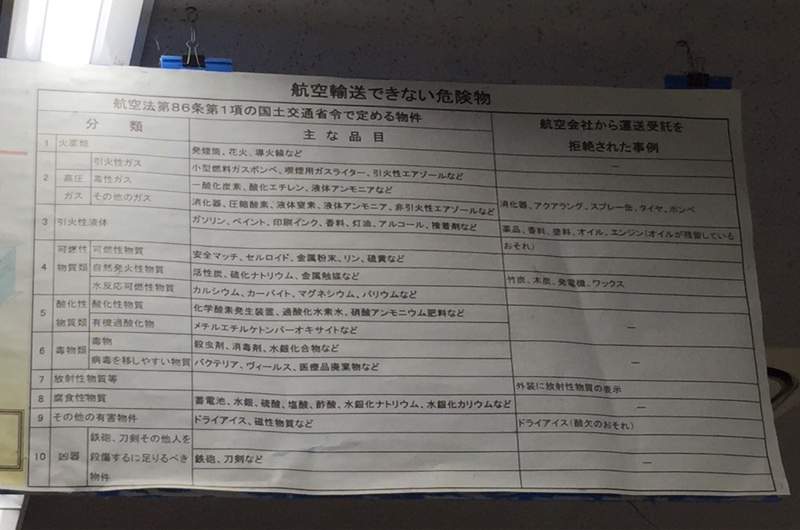 航空輸送できない危険物
航空法第86条第1項の国土交通省令で定める物件
航空会社から運送受託を
拒絶された事例
分 類
主 な 品 目
1 火薬類 発煙筒、花火、導火線など －
2 高圧ガス 引火性ガス 小型燃料ガスボンベ、喫煙用ガスライター、引火性エアゾールなど
毒性ガス 一酸化炭素、酸化エチレン、液体アンモニアなど
その他のガス 消化器、圧縮酸素、液体窒素、液体アンモニア、非引火性エアゾールなど 消化器、アクアラング、スプレー缶、タイヤ、ボンベ
3 引火性液体 ガソリン、ペイント、印刷インク、香料、灯油、アルコール、接着剤など 薬品、香料、塗料、オイル、エンジン(オイルが残留している
おそれ)
4 可燃性物質類 可燃性物質 安全マッチ、セルロイド、金属粉末、リン、硫黄など
自然発火性物質 活性炭、硫化ナトリウム、金属触媒など 竹炭、木炭、発電機、ワックス
水反応可燃性物質 カルシウム、カーバイト、マグネシウム、バリウムなど
5 酸化性物質類 酸化性物質 化学酸素発生装置、過酸化水素水、硝酸アンモニウム肥料など －
有機過酸化物 メチルエチルケトンパーオキサイトなど
6 毒物類 毒物 殺虫剤、消毒剤、水銀化合物など －
病毒を移しやすい物質 バクテリア、ヴィールス、医療品廃棄物など
7 放射性物質等 外装に放射性物質の表示
8 腐食性物質 蓄電池、水銀、硫酸、塩酸、酢酸、水銀化ナトリウム、水銀化カリウムなど －
9 その他の有害物件 ドライアイス、磁性物質など ドライアイス(酸欠のおそれ)
10 凶器 鉄砲、刀剣その他人を
殺傷するに足りるべき
物件 鉄砲、刀剣など －